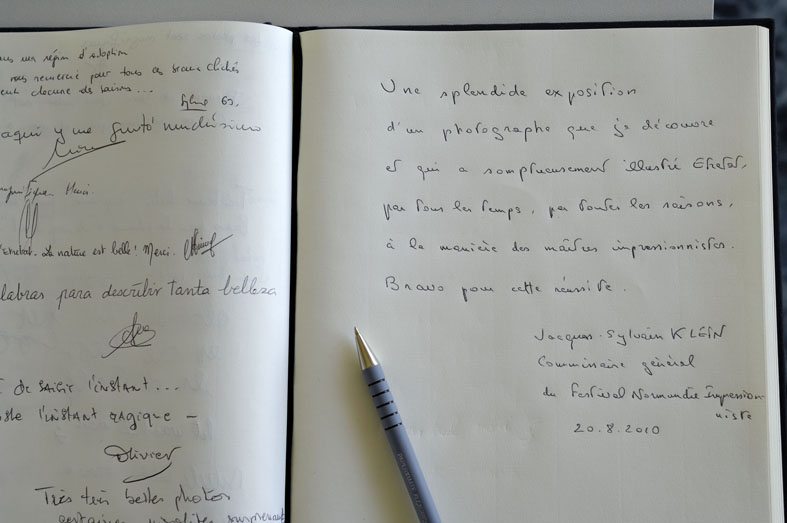 un régim d'adoption
vous remercié pour tous ces beaux clichés
chacune des saisons...
aqui y me gustó muchísimo
Merci.
La nature est belle! Merci.
labras para describir tanta belleza
de saisir l'instant...
l'instant magique –
Olivier
Très très belles photos
certaines
Une splendide exposition
d'un photographe que je découvre
et qui a somptueusement illustré Etretat,
par tous les temps, par toutes les saisons,
à la manière des maîtres impressionnistes.
Bravo pour cette réussite.
Jacques-Sylvain KLEIN
Commissaire général
du Festival Normandie Impression-
niste
20.8.2010